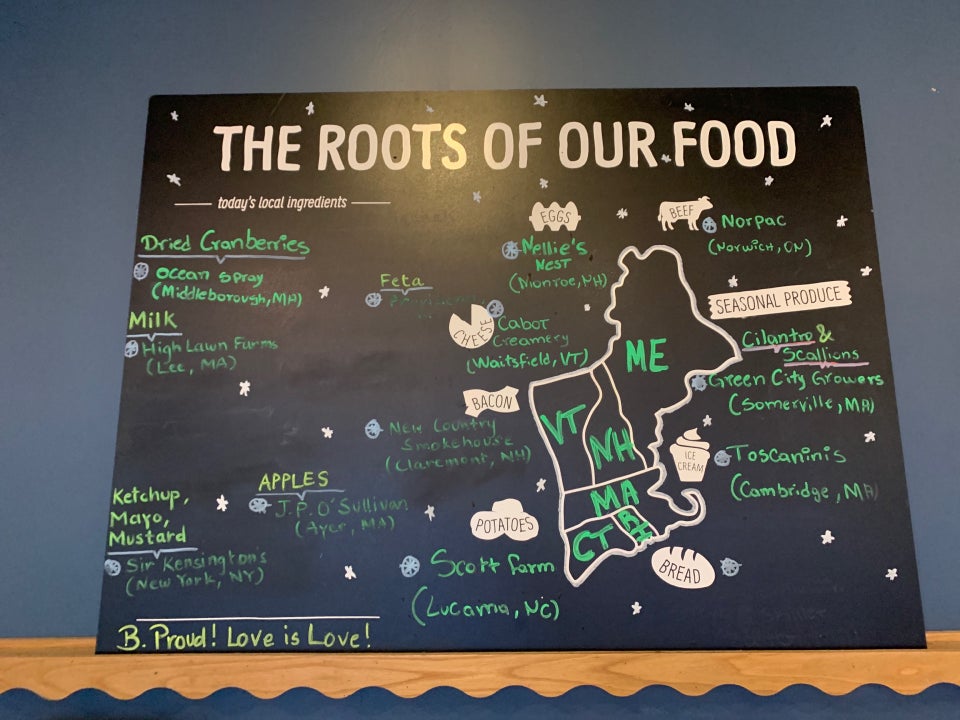 THE ROOTS OF OUR FOOD
today's local ingredients
Dried Cranberries
Ocean Spray
(Middleborough, MA)
Milk
High Lawn Farms
(Lee, MA)
Feta
EGGS
Nellie's
Nest
(Monroe, NH)
CHEESE
Cabot
Creamery
(Waitsfield, VT)
BACON
New Country
Smokehouse
(Claremont, NH)
APPLES
J.P. O'Sullivan
(Ayer, MA)
Ketchup,
Mayo,
Mustard
Sir Kensington's
(New York, NY)
POTATOES
Scott Farm
(Lucama, NC)
BEEF
Norpac
(Norwich, ON)
SEASONAL PRODUCE
Cilantro &
Scallions
Green City Growers
(Somerville, MA)
ICE
CREAM
Toscaninis
(Cambridge, MA)
BREAD
ME
VT
NH
MA
CT
RI
B. Proud! Love is Love!